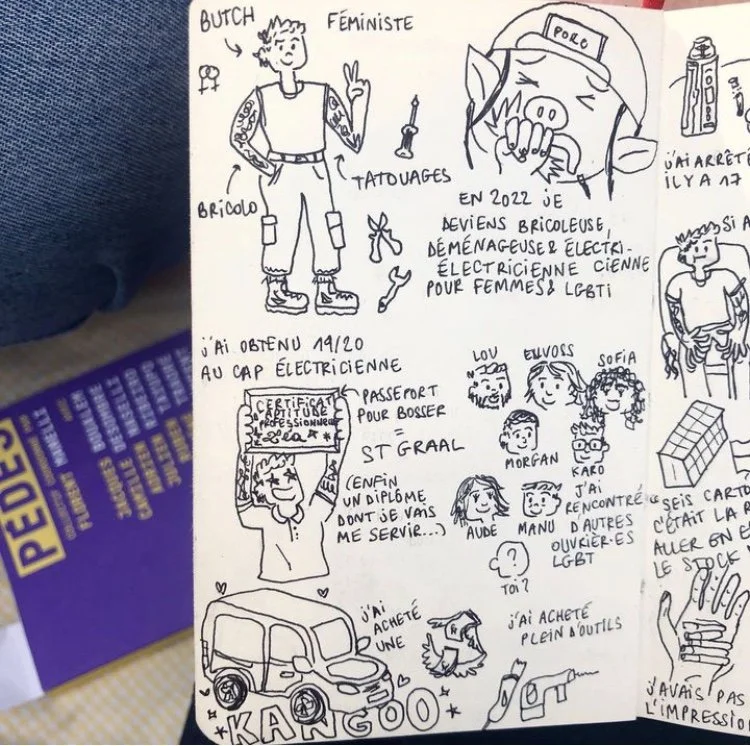 BUTCH
FÉMINISTE
PORC
TATOUAGES
BRICOLO
EN 2022 JE
DEVIENS BRICOLEUSE,
DÉMÉNAGEUSE & ÉLECTRI-
ÉLECTRICIENNE CIENNE
POUR FEMMES & LGBTI
J'AI OBTENU 19/20
AU CAP ÉLECTRICIENNE
CERTIFICAT
APTITUDE
PROFESSIONNELLE
Léa
PASSEPORT
POUR BOSSER
=
ST GRAAL
(ENFIN
UN DIPLÔME
DONT JE VAIS
ME SERVIR...)
LOU
EILVOSS
SOFIA
MORGAN
KARO
AUDE
MANU
J'AI
RENCONTRÉ
D'AUTRES
OUVRIÈR·ES
LGBT
?
TOI?
J'AI
ACHETÉ
UNE
KANGOO
J'AI ACHETÉ
PLEIN D'OUTILS
J'AI ARRÊTÉ
IL Y A 17
SI A
C'ÉTAIT LA
ALLER EN
LE STOCK
J'AVAIS PAS
L'IMPRESSIO
PÉDÉS
FLORENT MANELLI